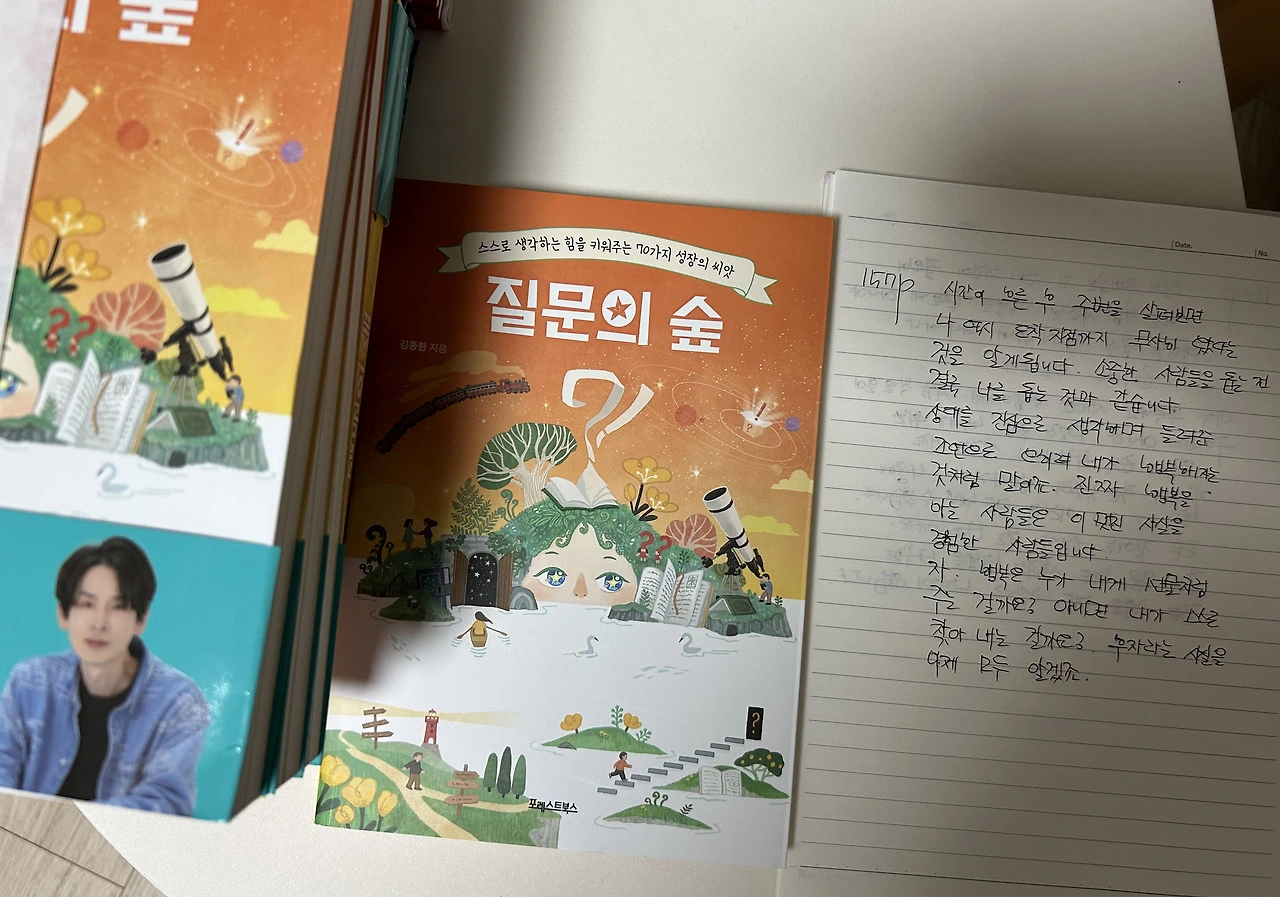 숲
스스로 생각하는 힘을 키워주는 70가지 성장의 씨앗
질문의 숲
김종원 지음
??
??
?
포레스트북스
Date.
No.
157p
시간이 흐른 후 주변을 살펴보면
나 역시 도착지점까지 무사히 왔다는
것을 알게 됩니다. 소중한 사람들을 돕는 건
결국 나를 돕는 것과 같습니다.
상대를 진심으로 생각하며 들려준
조언으로 오히려 내가 행복해지는
것처럼 말이죠. 진짜 행복을
아는 사람들은 이 멋진 사실을
경험한 사람들입니다
자. 행복은 누가 내게 선물처럼
주는 걸까요? 아니면 내가 스스로
찾아 내는 걸까요? 후자라는 사실을
이제 모두 알겠죠.